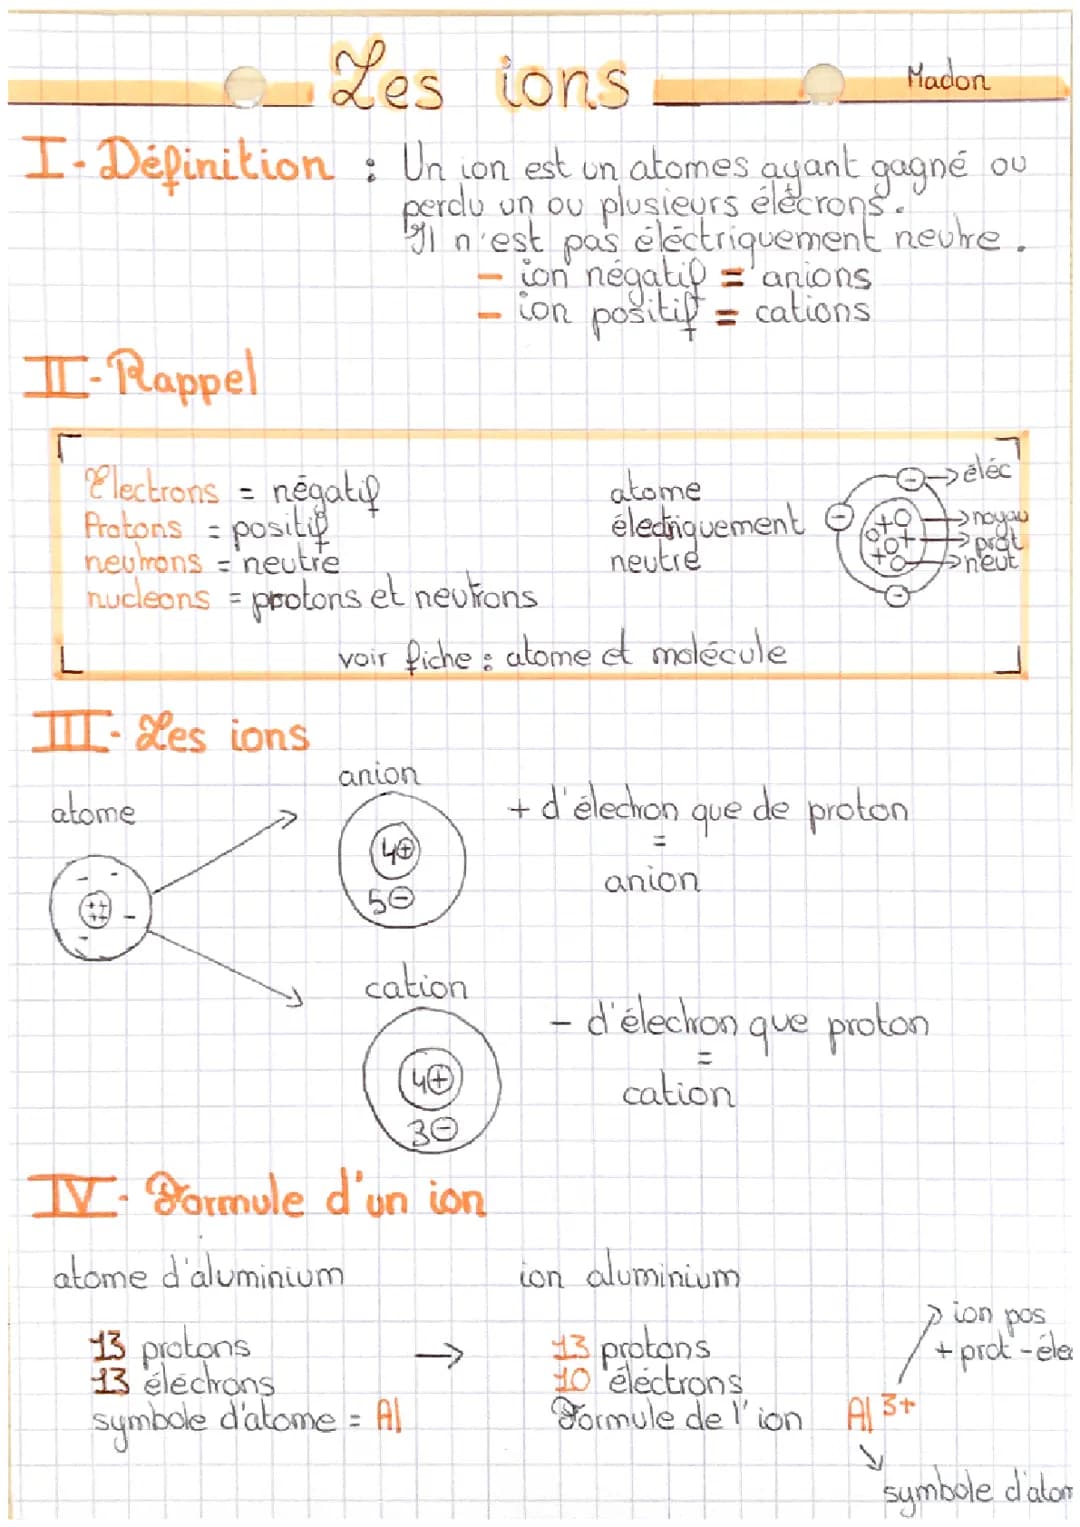 Les ions
Madon
I - Définition : Un ion est un atomes ayant gagné ou
perdu un ou plusieurs élécrons.
Il n'est pas éléctriquement neutre.
- ion négatif = anions
- ion positif = cations
II - Rappel
Electrons = négatif
Protons = positif
neutrons = neutre
nucleons = protons et neutrons
atome
électriquement
neutre
éléc
noyau
prot
neut
voir fiche : atome et molécule
III - Les ions
atome
anion
4+
5-
+ d'électron que de proton
=
anion
cation
4+
3-
- d'électron que proton
=
cation
IV - Formule d'un ion
atome d'aluminium
13 protons
13 éléctrons
symbole d'atome = Al
ion aluminium
13 protons
10 éléctrons
Formule de l'ion Al 3+
ion pos
+ prot - éle
symbole d'atom